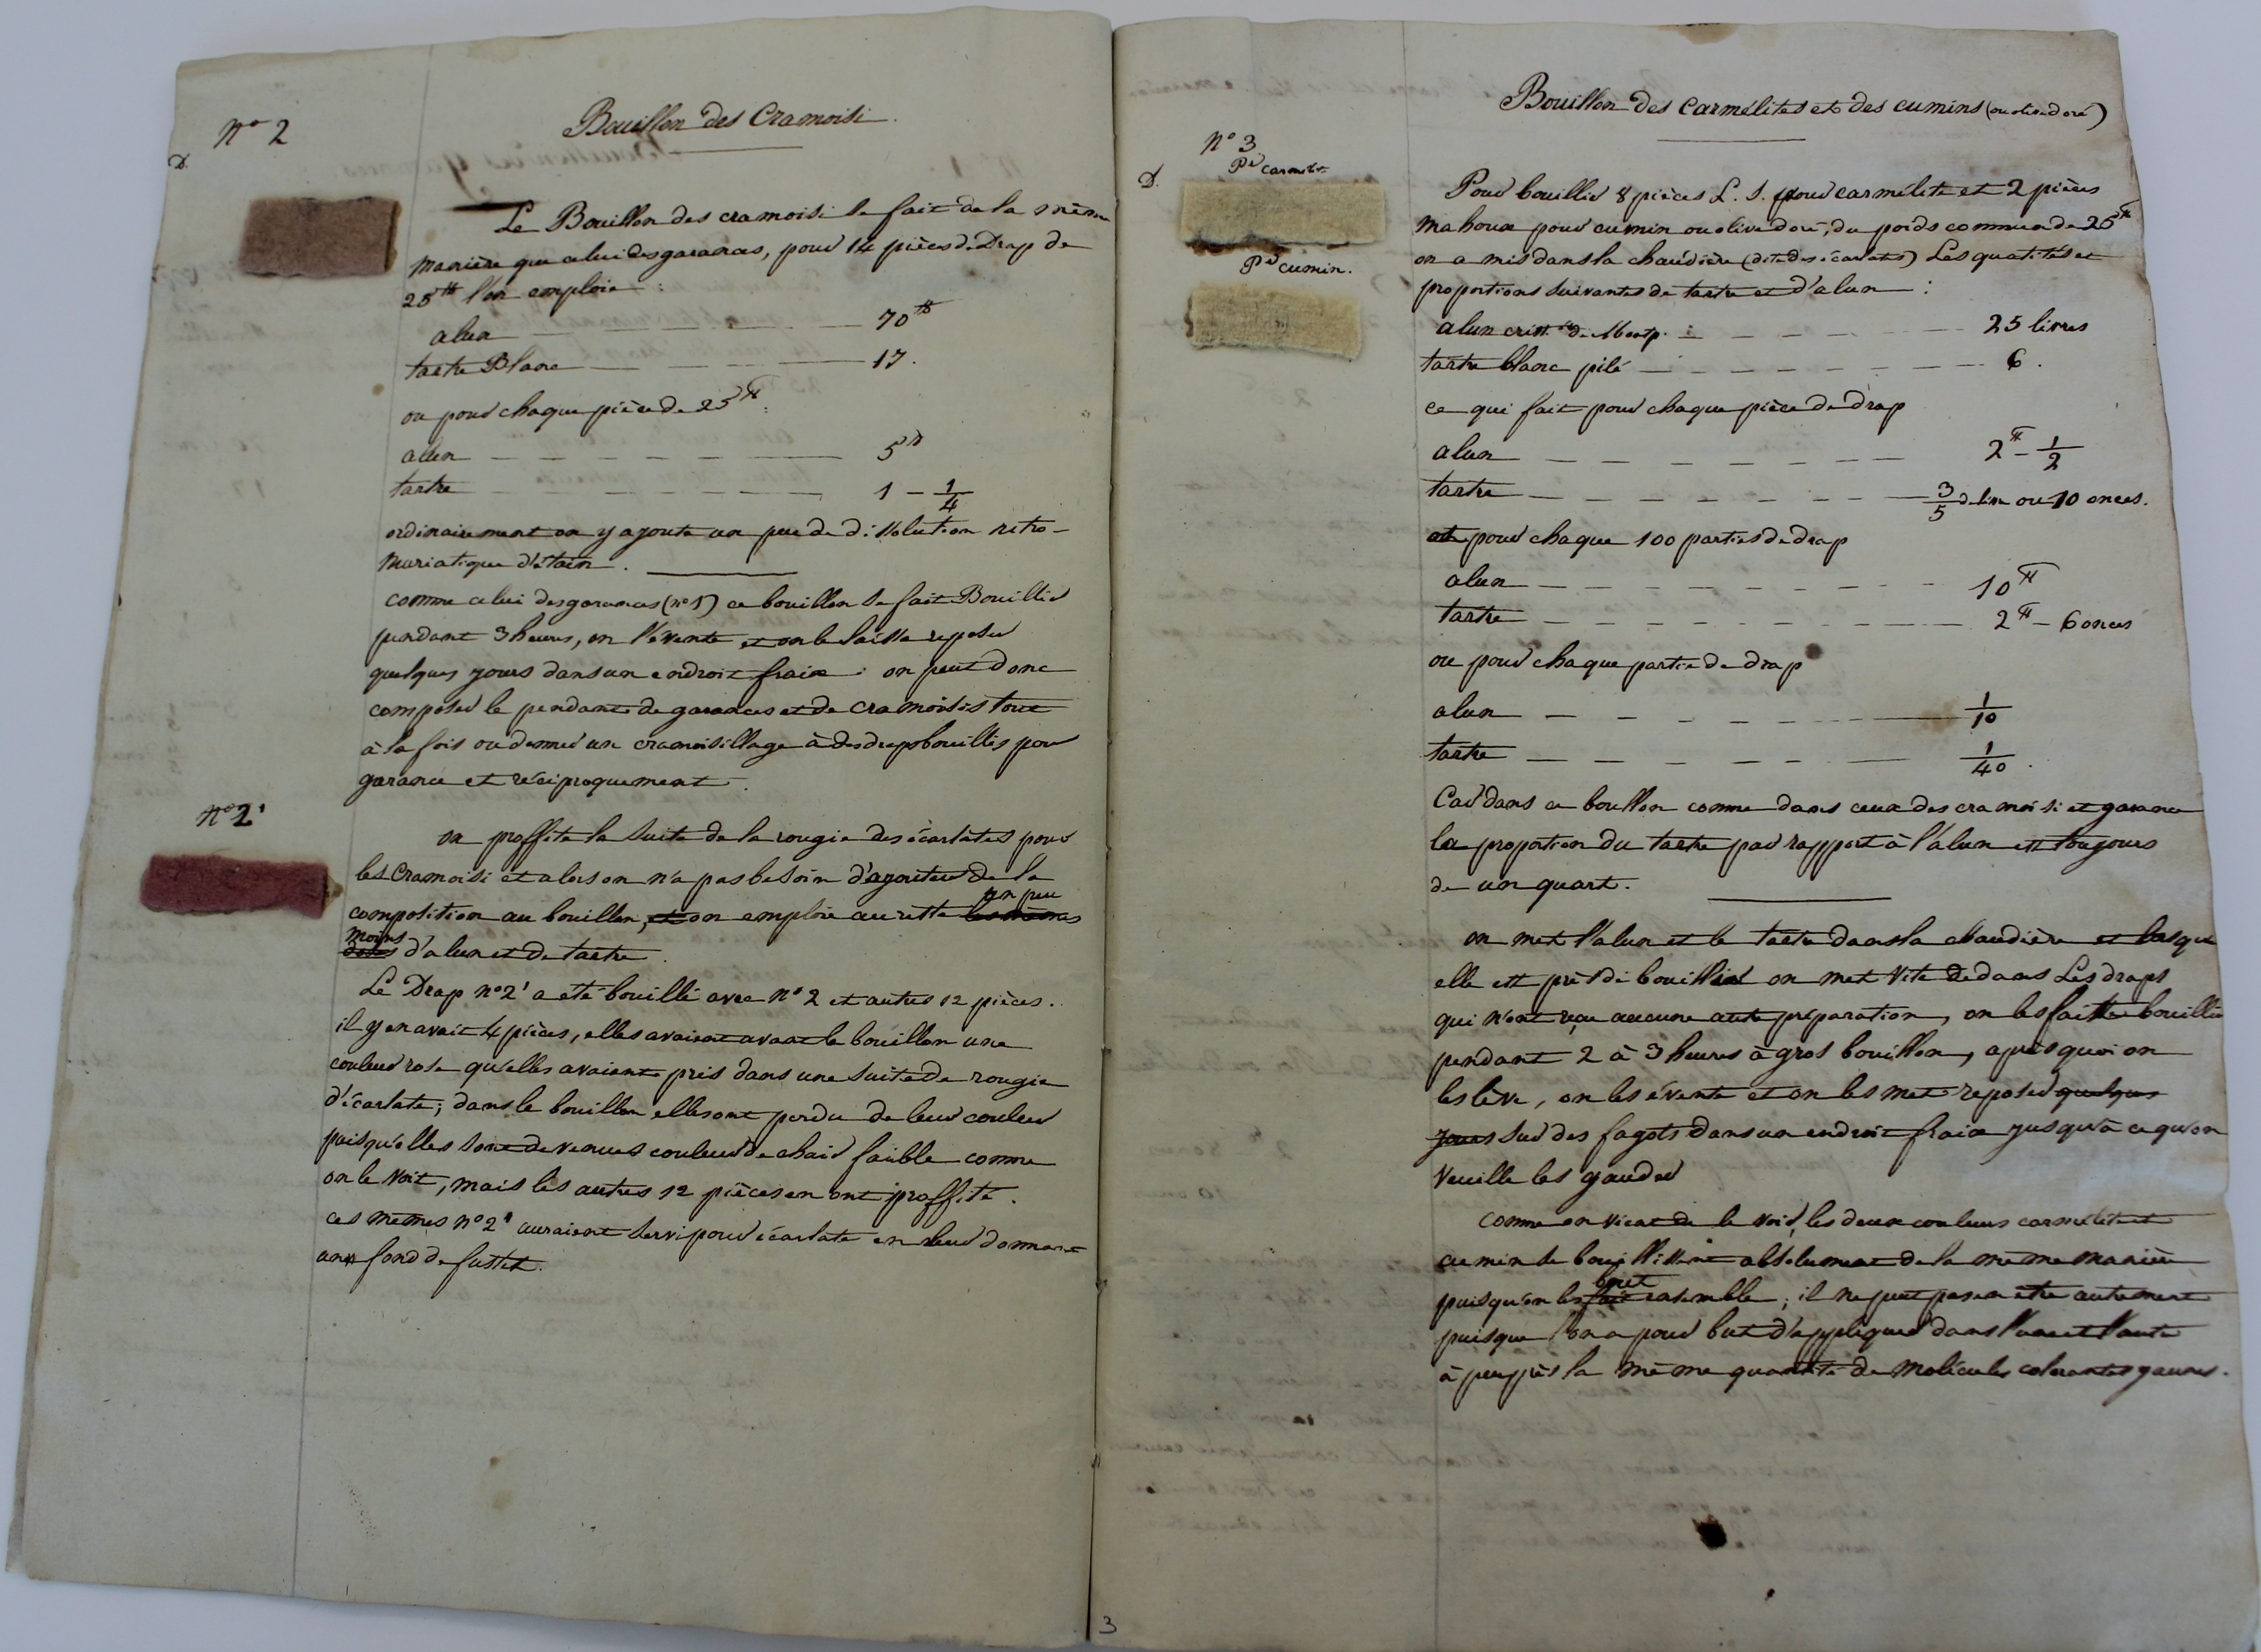 N° 2
D.
Bouillon des Cramoisi.
Le Bouillon des cramoisi se fait de la même
manière que celui des garances, pour 14 pièces de Drap de
25 ℔ l'on emploie :
alun — — — — 70 ℔
tartre Blanc — — — — 17.
ou pour chaque pièce de 25 ℔ :
alun — — — — — — 5 ℔
tartre — — — — — — 1 - 1/4
ordinairement on y ajoute un peu de dissolution nitro-
muriatique d'étain.
comme celui des garances (n° 1) ce bouillon se fait Bouillir
pendant 3 heures, on l'évente et on le laisse reposer
quelques jours dans un endroit fraix : on peut donc
composer le pendant de garances et de cramoisis tout
à la fois ou donner un cramoisillage à des draps bouillis pour
garance et réciproquement.
N° 2'
on proffite la suite de la rougie des écarlates pour
les Cramoisi et alors on n'a pas besoin d'ajouter de la
composition au bouillon, et on emploie au reste les mêmes un peu
doses moins d'alun et de tartre.
Le Drap n° 2' a été bouilli avec n° 2 et autres 12 pièces.
il y en avait 4 pièces, elles avaient avant le bouillon une
couleur rose qu'elles avaient pris dans une suite de rougie
d'écarlate; dans le bouillon elles ont perdu de leur couleur
puisqu'elles sont devenues couleur de chair faible comme
on le voit, mais les autres 12 pièces en ont proffité.
ces mêmes n° 2' auraient servi pour écarlate en leur donnant
un fond de fustet.
3
Bouillon des Carmélites et des cumins (ou olive doré)
N° 3
D.
Pr carmélite
Pr cumin.
Pour bouillir 8 pièces L. S. pour carmélite et 2 pièces
mahoux pour cumin ou olive doré, du poids commun de 25 ℔
on a mis dans la chaudière (dite des écarlates) Les quatités et
proportions suivantes de tartre et d'alun :
alun crist. de Montp. : — — — — 25 livres
tartre blanc pilé — — — — — — 6.
ce qui fait pour chaque pièce de drap
alun — — — — — — 2 ℔ - 1/2
tartre — — — — — — 3/5 de livre ou 10 onces.
et pour chaque 100 parties de drap
alun — — — — — — 10 ℔
tartre — — — — — — 2 ℔ - 6 onces
ou pour chaque partie de drap
alun — — — — — — 1/10
tartre — — — — — — 1/40.
Car dans ce bouillon comme dans ceux des cramoisi et garance
la proportion du tartre par rapport à l'alun est toujours
de un quart.
on met l'alun et le tartre dans la chaudière et lorsque
elle est près de bouillir on met vite dedans Les draps
qui n'ont reçu aucune autre préparation, on les fait bouillir
pendant 2 à 3 heures à gros bouillon, après quoi on
les lève, on les évente et on les met reposer quelques
jours sur des fagots dans un endroit fraix jusqu'à ce qu'on
veuille les gauder
comme on vient de le voir, les deux couleurs carmélite et
cumin se bouillissent absolument de la même manière
puisqu'on les fait bout ensemble; il ne peut pas en être autrement
puisque l'on a pour but d'appliquer dans l'une et l'autre
à peu près la même quantité de molécules colorantes jaunes.